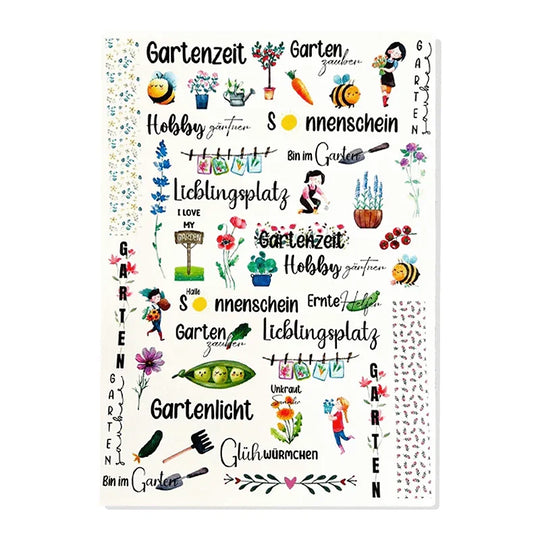 Gartenzeit
Garten
zauber
GARTEN
zauber
Hobby gärtner
S nnenschein
Bin im Garten
Lieblingsplatz
I LOVE
MY
GARDEN
Gartenzeit
Hobby gärtner
GARTEN
Hallo
S nnenschein
Ernte Helfer
Garten
zauber
Lieblingsplatz
GARTEN
zauber
Unkraut
Sammler
GARTEN
Gartenlicht
Glüh WÜRMCHEN
Bin im Garten